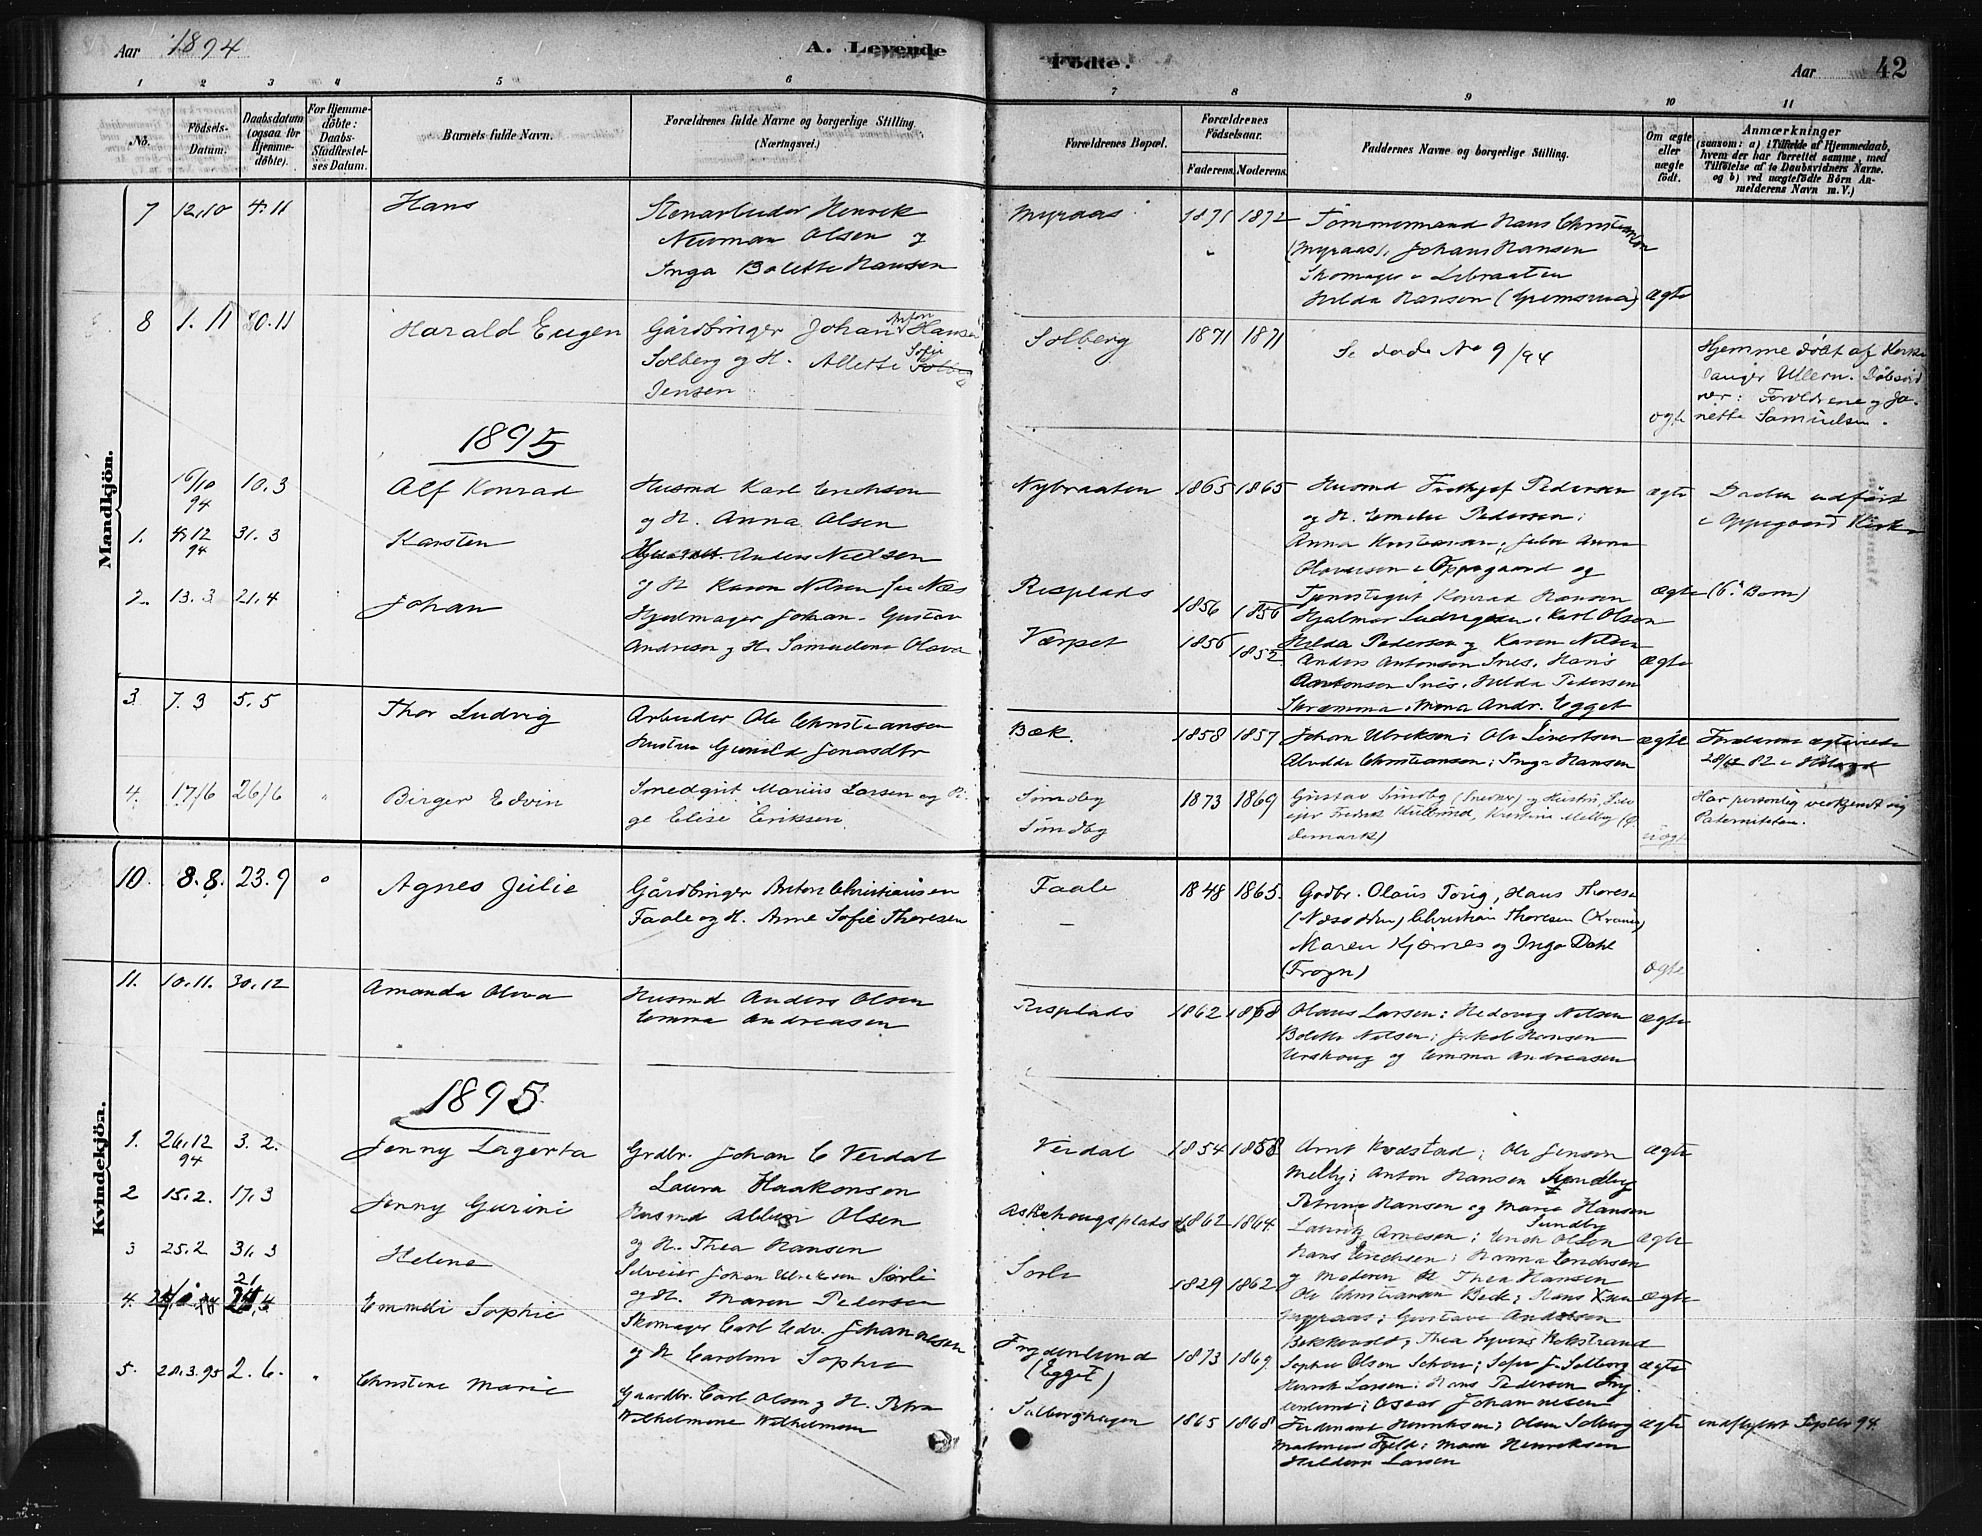 Aar 1894
A. Levende
Fødte.
Aar
42
1 2 3 4 5 6 7 8 9 10 11
No.
Fødsels-
Datum.
Daabsdatum
(ogsaa for
Hjemme-
døbte).
For Hjemme-
døbte:
Daabs-
Stadfæstel-
ses Datum.
Barnets fulde Navn.
Forældrenes fulde Navne og borgerlige Stilling.
(Næringsvei.)
Forældrenes Bopæl.
Forældrenes
Fødselsaar.
Faderens. Moderens.
Faddernes Navne og borgerlige Stilling.
Om ægte
eller
uægte
født.
Anmærkninger
(saasom: a) i Tilfælde af Hjemmedaab,
hvem der har forrettet samme, med
Tilføielse af to Daabsvidners Navne.
og b) ved uægtefødte Børn An-
melderens Navn m. V.)
Mandkjön.
7 12.10 4.11 Hans
Stenarbeider Henrik
Neuman Olsen og
Inga Bolette Hansen
Myraas 1871 1872
Tømmermand Hans Christiansen
(Myraas), Johans Hansen
Skomager
Hilda Hansen
ægte
8 1.11 30.11 Harald Eugen
Gårdbruger Johan Anton Hansen
Solberg og H. Allette Sofie
Jensen
Solberg 1871 1871
Se døde No 9/94
ægte
Hjemmedøbt af Kirke-
sanger Ullern. Døbevid-
ner: Forældrene og Ja-
nette Samuelsen.
1895
16/10 94 10.3 Alf Konrad
Husmd Karl Erichsen
og H. Anna Olsen
Nybraaten 1865 1865
Husmd Frithjof Pedersen
og H. Emelie Pedersen;
ægte
Daaben udført
i Oppegaard Kirke
1. 4.12 94 31.3 Karsten
Anders Nielsen
og H. Karen Nilsen fra Næs
Risplads 1856 1856
Olaversen i Oppegaard og
Tjenestegut Konrad Hansen
Hjalmar Ludvigsen, Karl Olson
Hilda Pedersen og Karen Nilsen
ægte (6te Barn)
2. 13.3 21.4 Johan
Hjulmager Johan Gustav
Andreson og H. Samueline Olava
Værpet 1856 1852
Anders Antonsen Snes, Hans
Antonsen Snes, Hilda Pedersen
Skræmma, Mina Andr. Egget
ægte
3 7.3 5.5 Thor Ludvig
Arbeider Ole Christiansen
Hustru Gunild Jonasdtr
Bæk. 1858 1857
Johan Ulriksen; Ole Sivertsen
Alvilde Christiansen; Inga Hansen
ægte
4. 17/6 26/6 " Birger Edvin
Smedgut Marius Larsen og Pi-
ge Elise Eriksen
Sundby
Sundby
1873 1869
Gustav Sundby (Snedker) og Hustru,
Fredrik Hulbund, Kristine Melby
uægte
Har personlig vedkjendt sig
Paterniteten.
Kvindekjön.
10. 8.8. 23.9 " Agnes Julie
Gårdbruger Anton Christiansen
Faale og H. Anne Sofie Thoresen
Faale
—
1848 1865.
Grdbr. Olaus Torig, Hans Thoresen
(Næsodden) Christian Thoresen
Maren Kjærnes og Inga Dahl
(Frogn)
ægte
11. 10.11. 30.12 Amanda Olava
Husmd Anders Olsen
Emma Andreasen
Risplads 1862 1868
Olaus Larsen; Hedvig Nilsen
Bolette Nilsen; Jakob Hansen
Urskoug og Emma Andreasen
ægte
1895
1. 26.12 94 3.2. Jenny Lagerta
Grdbr. Johan C Verdal
Laura Haakonsen
Verdal 1854 1858
Arnt Kodstad; Ole Jensen
Melby; Anton Hansen Sundby
Petrine Hansen og Marie Hansen
Sundby
ægte
2 15.2. 17.3 Jenny Gurine
Husmd Albin Olsen
og H. Thea Hansen
Askehougsplads 1862 1864.
Lauritz Arnesen; Erich Olsen
Hans Erichsen; Hanna Erichsen
og Moderen H. Thea Hansen
ægte
3 25.2 31.3 Helene
Selveier Johan Ulriksen Sørli
og H. Maren Pedersen
Sørli 1829 1862
Ole Christiansen Bæk; Hans
Myraas; Gustava Andersen
ægte
4. Emmeli Sophie
Skomager Carl Edv. Johannesen
og H. Caroline Sophie
Frydenlund
(Egget)
1873 1869
Sophie Olsen Schou; Sofie J. Solberg
Henrik Larsen; Hans Pedersen Fry-
denlund; Oscar Johannesen
ægte
5. 20.3.95 2.6. " Christine Marie
Gaardbr. Carl Olsen og H. Petra
Wilhelmine Wilhelmsen
Solberghagen 1865 1868
Ferdinand Henriksen; Olava Solberg
Mathias Fjeld; Marie Henriksen
Haldora Larsen
ægte
indflyttet Septbr 94.